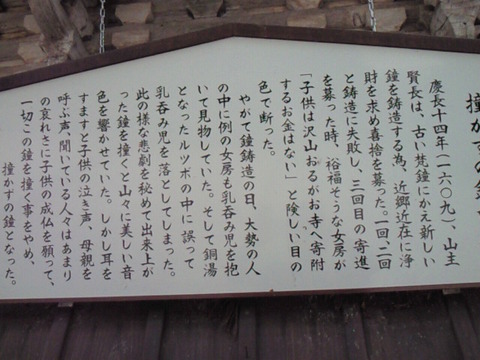 撞かずの鐘
慶長十四年(一六〇九)、山主
賢長は、古い梵鐘にかえ新しい
鐘を鋳造する為、近郷近在に浄
財を求め喜捨を募った。一回、二回
と鋳造に失敗し、三回目の寄進
を募った時、裕福そうな女房が
「子供は沢山おるがお寺へ寄附
するお金はない」と険しい目の
色で断った。
やがて鐘鋳造の日、大勢の人
の中に例の女房も乳呑み児を抱
いて見物していた。そして銅湯
となったルツボの中に誤って
乳呑み児を落としてしまった。
此の様な悲劇を秘めて出来上が
った鐘を撞くと山々に美しい音
色を響かせていた。しかし耳を
すますと子供の泣き声、母親を
呼ぶ声、聞いている人々はあまり
の哀れさに子供の成仏を願って、
一切この鐘を撞く事をやめ、
撞かずの鐘となった。